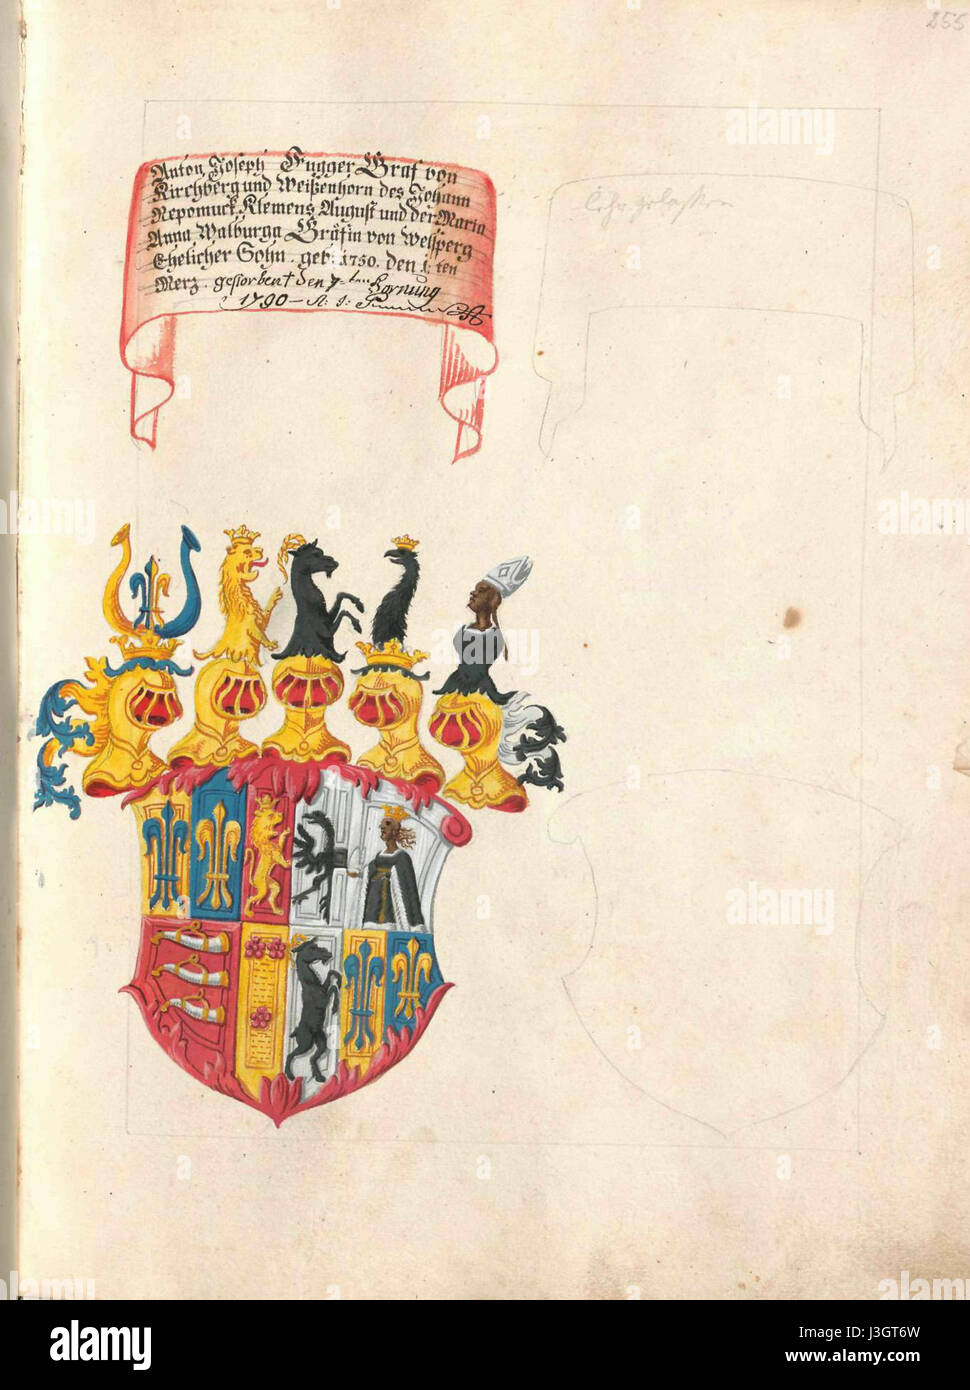 255
Anton Joseph Fugger Graf von
Kirchberg und Weißenhorn des Johann
Nepomuck Klemens August und der Maria
Anna Walburga Gräfin von Welsperg
Ehelicher Sohn. geb: 1750. den 1. ten
Merz. gestorben † den 7-ten Hornung
1790 – A: J:
leer gelassen
alamy
Image ID: J3GT6W
www.alamy.com